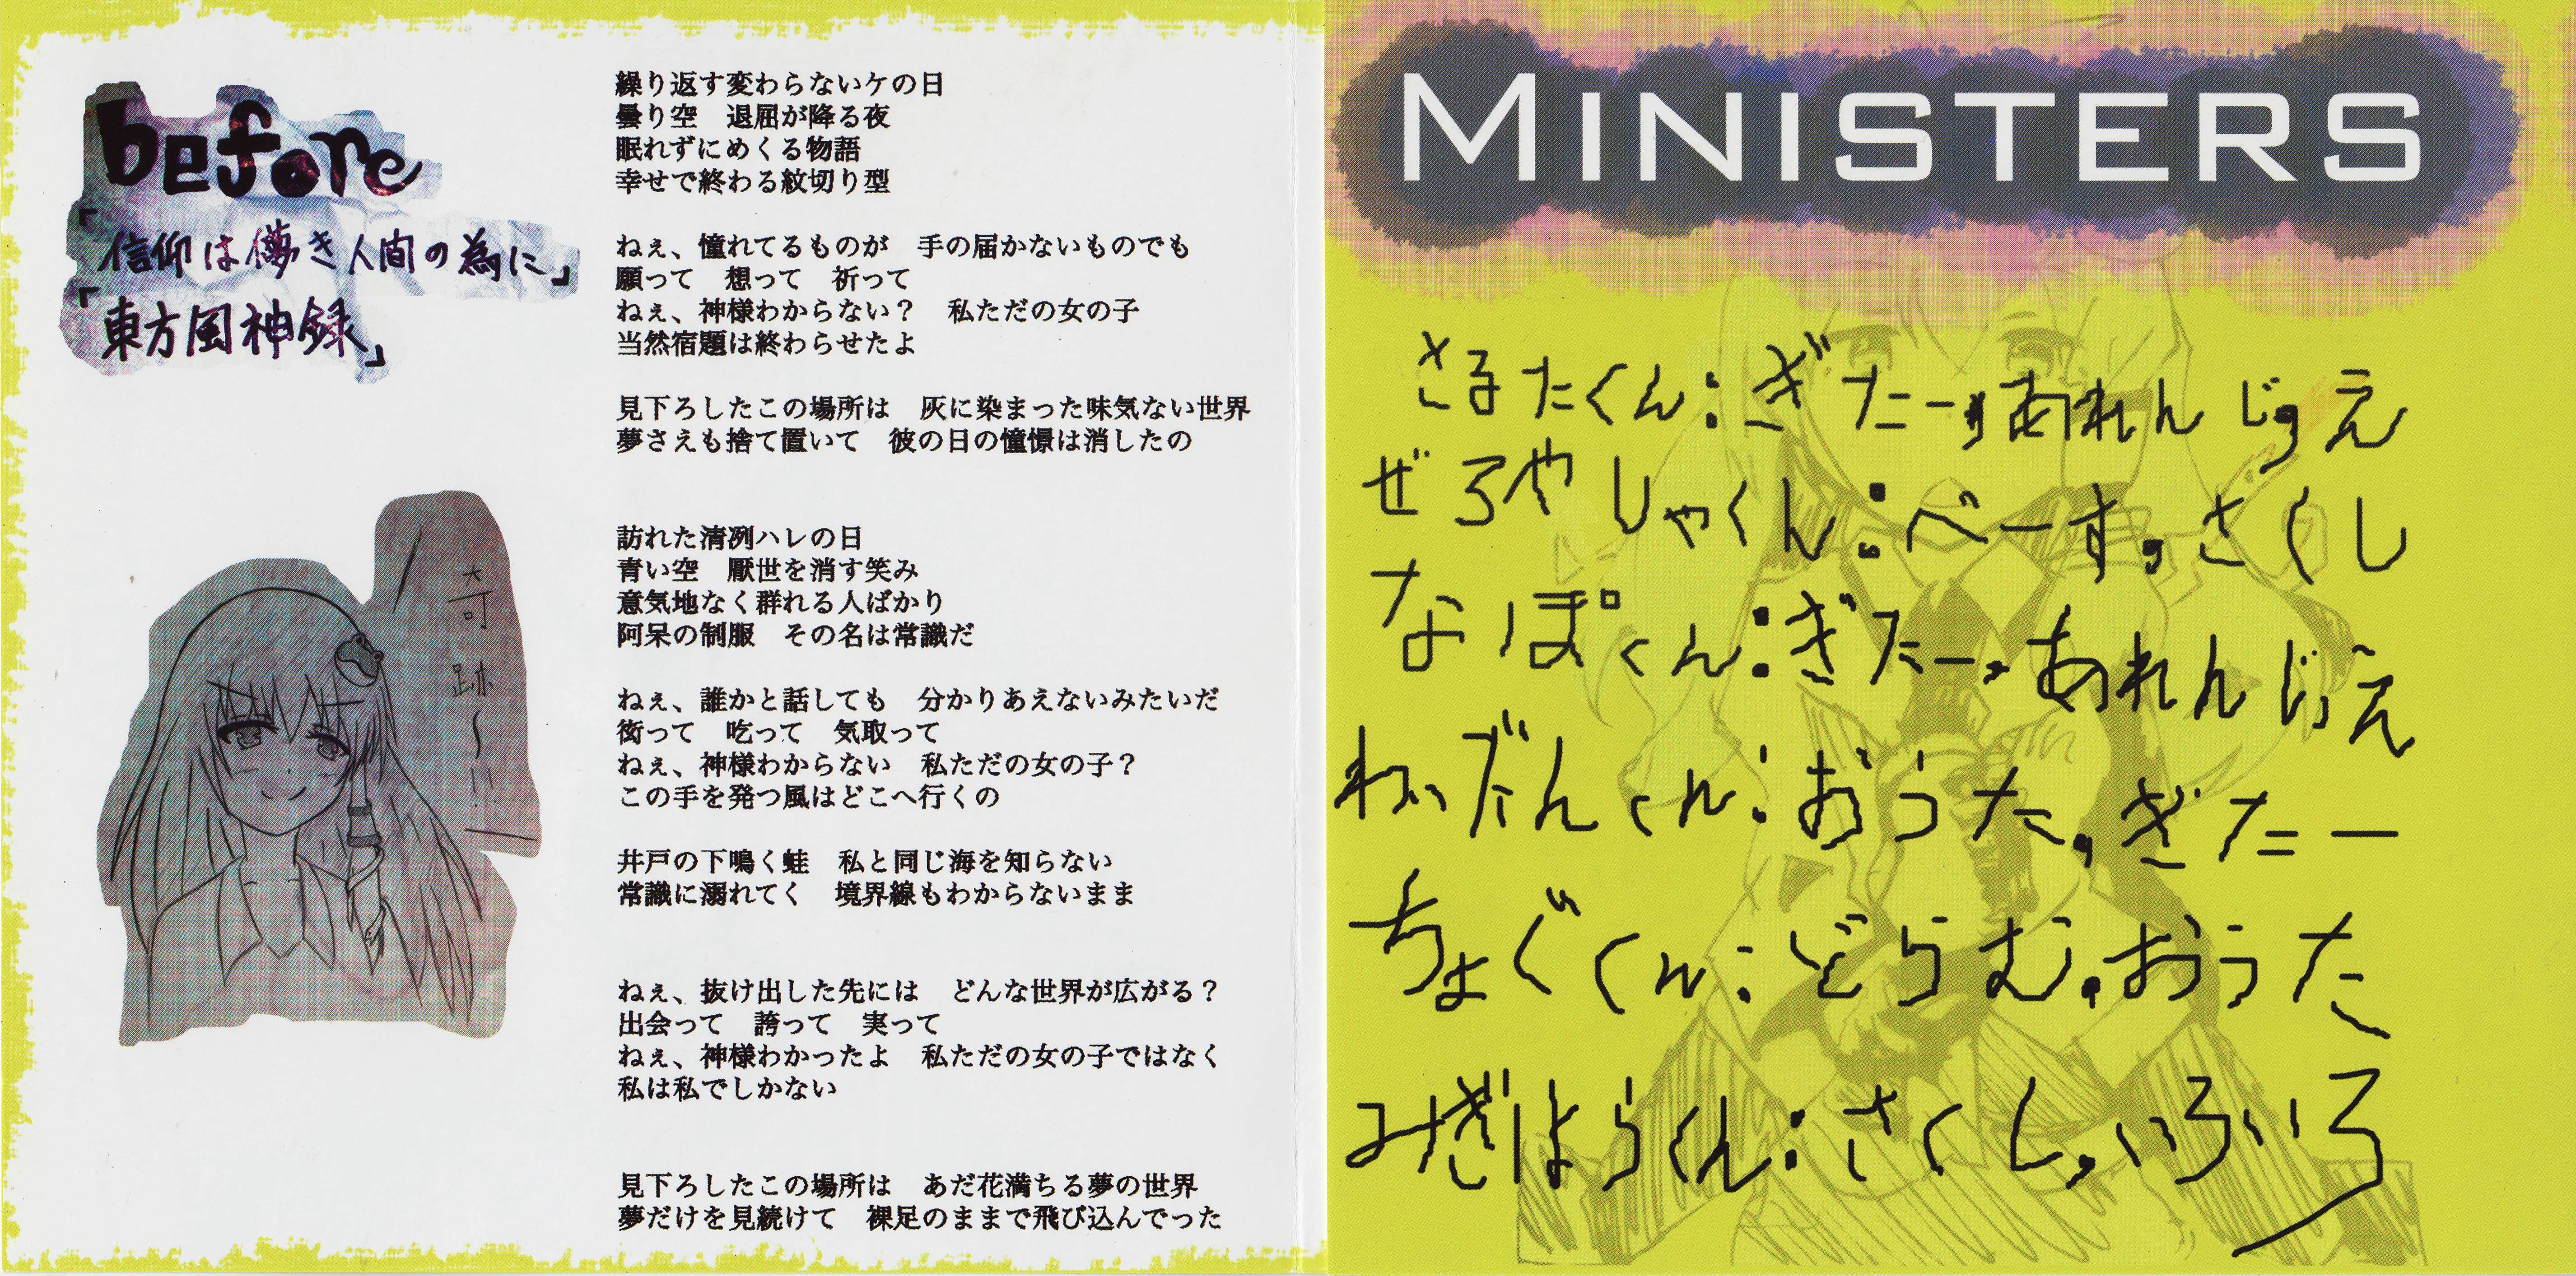 before
「信仰は儚き人間の為に」
「東方風神録」
奇跡〜!!
繰り返す変わらないケの日
曇り空　退屈が降る夜
眠れずにめくる物語
幸せで終わる紋切り型
ねぇ、憧れてるものが　手の届かないものでも
願って　想って　祈って
ねぇ、神様わからない？　私ただの女の子
当然宿題は終わらせたよ
見下ろしたこの場所は　灰に染まった味気ない世界
夢さえも捨て置いて　彼の日の憧憬は消したの
訪れた清冽ハレの日
青い空　厭世を消す笑み
意気地なく群れる人ばかり
阿呆の制服　その名は常識だ
ねぇ、誰かと話しても　分かりあえないみたいだ
衒って　吃って　気取って
ねぇ、神様わからない　私ただの女の子？
この手を発つ風はどこへ行くの
井戸の下鳴く蛙　私と同じ海を知らない
常識に溺れてく　境界線もわからないまま
ねぇ、抜け出した先には　どんな世界が広がる？
出会って　誇って　実って
ねぇ、神様わかったよ　私ただの女の子ではなく
私は私でしかない
見下ろしたこの場所は　あだ花満ちる夢の世界
夢だけを見続けて　裸足のままで飛び込んでった
MINISTERS
さるたくん:ぎたー,あれんじ,え
ぜろやしゃくん:べーす,さくし
なぽくん:ぎたー,あれんじ,え
くん:おうた,ぎたー
ちょぐくん:どらむ,おうた
みぎはらくん:さくし,いろいろ